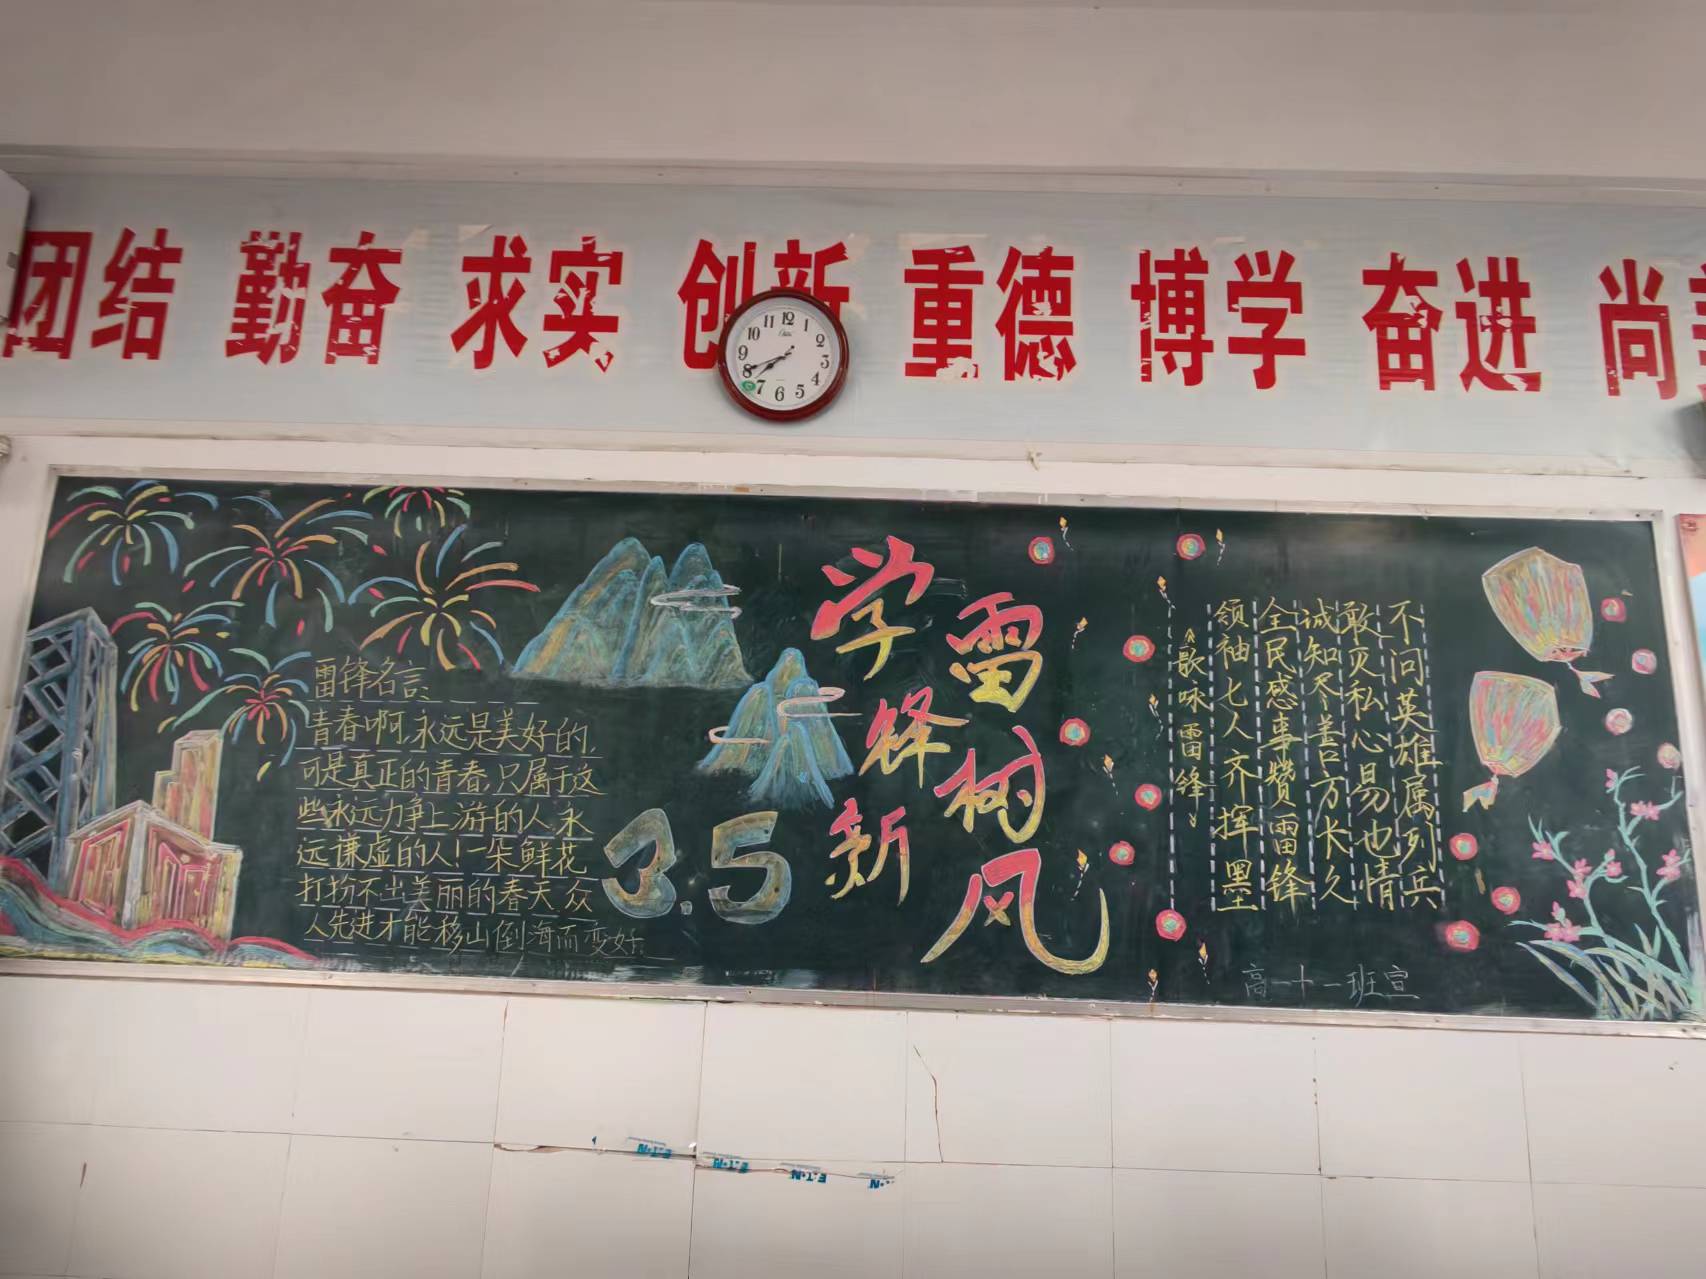 团结 勤奋 求实 创新 重德 博学 奋进 尚
12
1
2
3
4
5
6
7
8
9
10
11
雷锋名言
青春啊,永远是美好的,
可是真正的青春,只属于这
些永远力争上游的人,永
远谦虚的人!一朵鲜花
打扮不出美丽的春天,众
人先进才能移山倒海而变好
3.5
学雷锋树新风
不问英雄属列兵
敢灭私心易也情
诚知尽善方长久
全民感事赞雷锋
领袖七人齐挥墨
《歌咏雷锋》
高一十一班宣
EATON
EATON
EATON